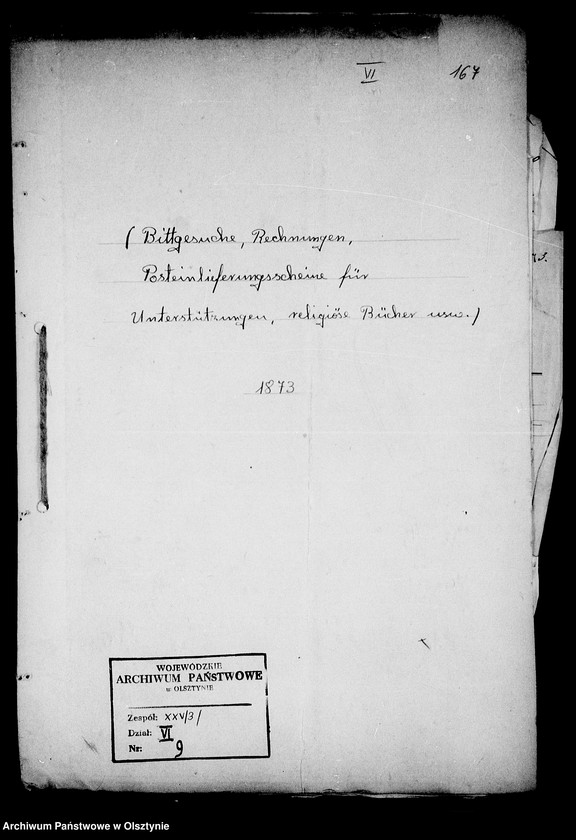 VI 167
( Bittgesuche, Rechnungen,
Posteinlieferungsscheine für
Unterstützungen, religiöse Bücher usw. )
1873
WOJEWÓDZKIE
ARCHIWUM PAŃSTWOWE
w OLSZTYNIE
Zespół: XXV/3/
Dział: VI
Nr: 9
Archiwum Państwowe w Olsztynie